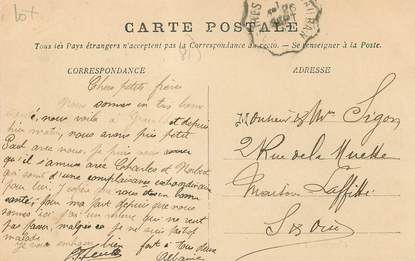 lot
CARTE POSTALE
Tous les Pays étrangers n'acceptent pas la Correspondance au recto. — Se renseigner à la Poste.
CORRESPONDANCE
Chers petits frères
Nous sommes en très bon
nous voilà à et depuis
hier matin, nous avons pris petit
Paul avec nous, je puis vous assurer
qu'il s'amuse avec Charles et Norbert
qui sont d'une complaisance extraordinaire
pour lui. J'espère que vous êtes en bonne
santé, pour ma part depuis que nous
sommes ici j'ai un rhume qui ne veut
pas passer, malgré ça je ne suis pas
malade
je vous embrasse bien fort à tous deux
Albanie
ADRESSE
Monsieur & Mme Sigon
2 Rue de la Muette
Maisons Laffitte
S et Oise